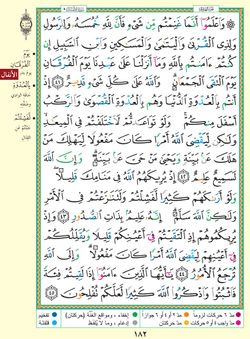 وَٱعْلَمُوٓا۟ أَنَّمَا غَنِمْتُم مِّن شَىْءٍ فَأَنَّ لِلَّهِ خُمُسَهُۥ وَلِلرَّسُولِ
وَلِذِى ٱلْقُرْبَىٰ وَٱلْيَتَٰمَىٰ وَٱلْمَسَٰكِينِ وَٱبْنِ ٱلسَّبِيلِ إِن
كُنتُمْ ءَامَنتُم بِٱللَّهِ وَمَآ أَنزَلْنَا عَلَىٰ عَبْدِنَا يَوْمَ ٱلْفُرْقَانِ
يَوْمَ ٱلْتَقَى ٱلْجَمْعَانِ وَٱللَّهُ عَلَىٰ كُلِّ شَىْءٍ قَدِيرٌ ٤١ إِذْ
أَنتُم بِٱلْعُدْوَةِ ٱلدُّنْيَا وَهُم بِٱلْعُدْوَةِ ٱلْقُصْوَىٰ وَٱلرَّكْبُ
أَسْفَلَ مِنكُمْ وَلَوْ تَوَاعَدتُّمْ لَٱخْتَلَفْتُمْ فِى ٱلْمِيعَٰدِ
وَلَٰكِن لِّيَقْضِىَ ٱللَّهُ أَمْرًا كَانَ مَفْعُولًا لِّيَهْلِكَ مَنْ
هَلَكَ عَنۢ بَيِّنَةٍ وَيَحْيَىٰ مَنْ حَىَّ عَنۢ بَيِّنَةٍ وَإِنَّ ٱللَّهَ
لَسَمِيعٌ عَلِيمٌ ٤٢ إِذْ يُرِيكَهُمُ ٱللَّهُ فِى مَنَامِكَ قَلِيلًا
وَلَوْ أَرَىٰكَهُمْ كَثِيرًا لَّفَشِلْتُمْ وَلَتَنَٰزَعْتُمْ فِى ٱلْأَمْرِ
وَلَٰكِنَّ ٱللَّهَ سَلَّمَ إِنَّهُۥ عَلِيمٌۢ بِذَاتِ ٱلصُّدُورِ ٤٣ وَإِذْ
يُرِيكُمُوهُمْ إِذِ ٱلْتَقَيْتُمْ فِىٓ أَعْيُنِكُمْ قَلِيلًا وَيُقَلِّلُكُمْ
فِىٓ أَعْيُنِهِمْ لِيَقْضِىَ ٱللَّهُ أَمْرًا كَانَ مَفْعُولًا وَإِلَى ٱللَّهِ
تُرْجَعُ ٱلْأُمُورُ ٤٤ يَٰٓأَيُّهَا ٱلَّذِينَ ءَامَنُوٓا۟ إِذَا لَقِيتُمْ فِئَةً
فَٱثْبُتُوا۟ وَٱذْكُرُوا۟ ٱللَّهَ كَثِيرًا لَّعَلَّكُمْ تُفْلِحُونَ ٤٥
يَوْمَ
الْفُرْقَانِ
الأنفال
بِالْعُدْوَةِ
لَفَشِلْتُمْ
١٨٢